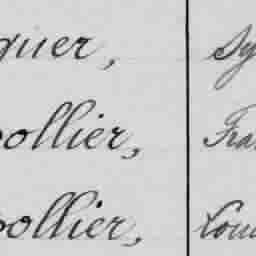 quer, Sy
ollier, Fra
ollier, Lou